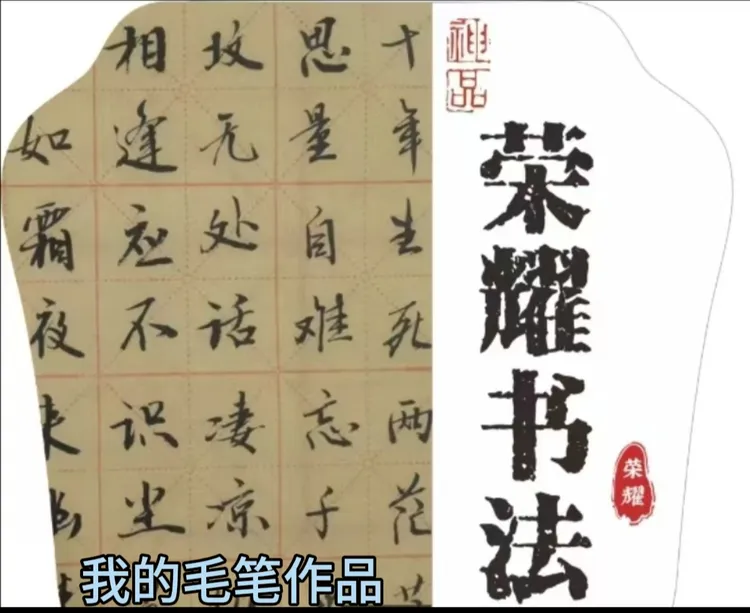 神品
荣耀书法
荣耀
十年生死两茫
思量自难忘千
坟无处话凄凉
相逢应不识尘
如霜夜来幽
我的毛笔作品